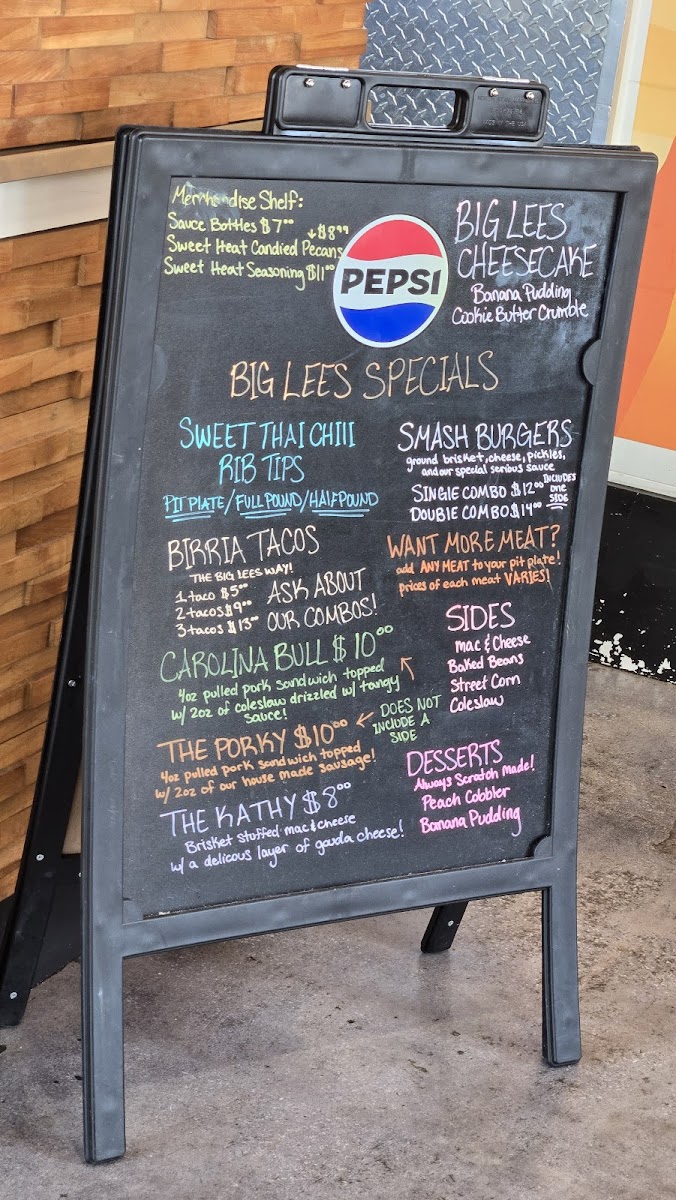 Merchandise Shelf:
Sauce Bottles $7⁰⁰
Sweet Heat Candied Pecans ↓$8⁹⁹
Sweet Heat Seasoning $11⁰⁰
PEPSI
BIG LEES
CHEESECAKE
Banana Pudding
Cookie Butter Crumble
BIG LEES SPECIALS
SWEET THAI CHILI
RIB TIPS
PIT PLATE/FULL POUND/HALF POUND
BIRRIA TACOS
THE BIG LEES WAY!
1 taco $5⁰⁰
2 tacos $9⁰⁰
3 tacos $13⁰⁰
ASK ABOUT
OUR COMBOS!
CAROLINA BULL $10⁰⁰
4oz pulled pork sandwich topped
w/ 2oz of coleslaw drizzled w/ tangy
sauce!
← DOES NOT
INCLUDE A
SIDE
THE PORKY $10⁰⁰
4oz pulled pork sandwich topped
w/ 2oz of our house made sausage!
THE KATHY $8⁰⁰
Brisket stuffed mac & cheese
w/ a delicous layer of gauda cheese!
SMASH BURGERS
ground brisket, cheese, pickles,
and our special serious sauce
SINGLE COMBO $12⁰⁰
DOUBLE COMBO $14⁰⁰
INCLUDES
one
SIDE
WANT MORE MEAT?
add ANY MEAT to your pit plate!
prices of each meat VARIES!
SIDES
Mac & Cheese
Baked Beans
Street Corn
Coleslaw
DESSERTS
Always Scratch Made!
Peach Cobbler
Banana Pudding